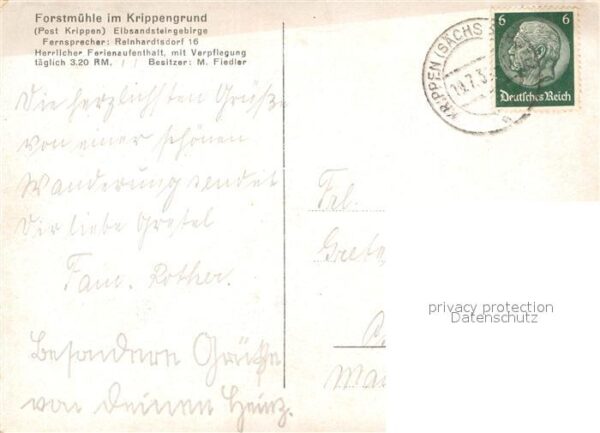 Forstmühle im Krippengrund
(Post Krippen) Elbsandsteingebirge
Fernsprecher: Reinhardtsdorf 16
Herrlicher Ferienaufenthalt, mit Verpflegung
täglich 3.20 RM. / / Besitzer: M. Fiedler
Die herzlichsten Grüße
von einer schönen
Wanderung sendet
Dir liebe Gretel
Fam. Rother.
Besondere Grüße
von Deinem Heinz.
KRIPPEN (SÄCHS
.7.3
6 6
Deutsches Reich
Frl.
Grete
privacy protection
Datenschutz